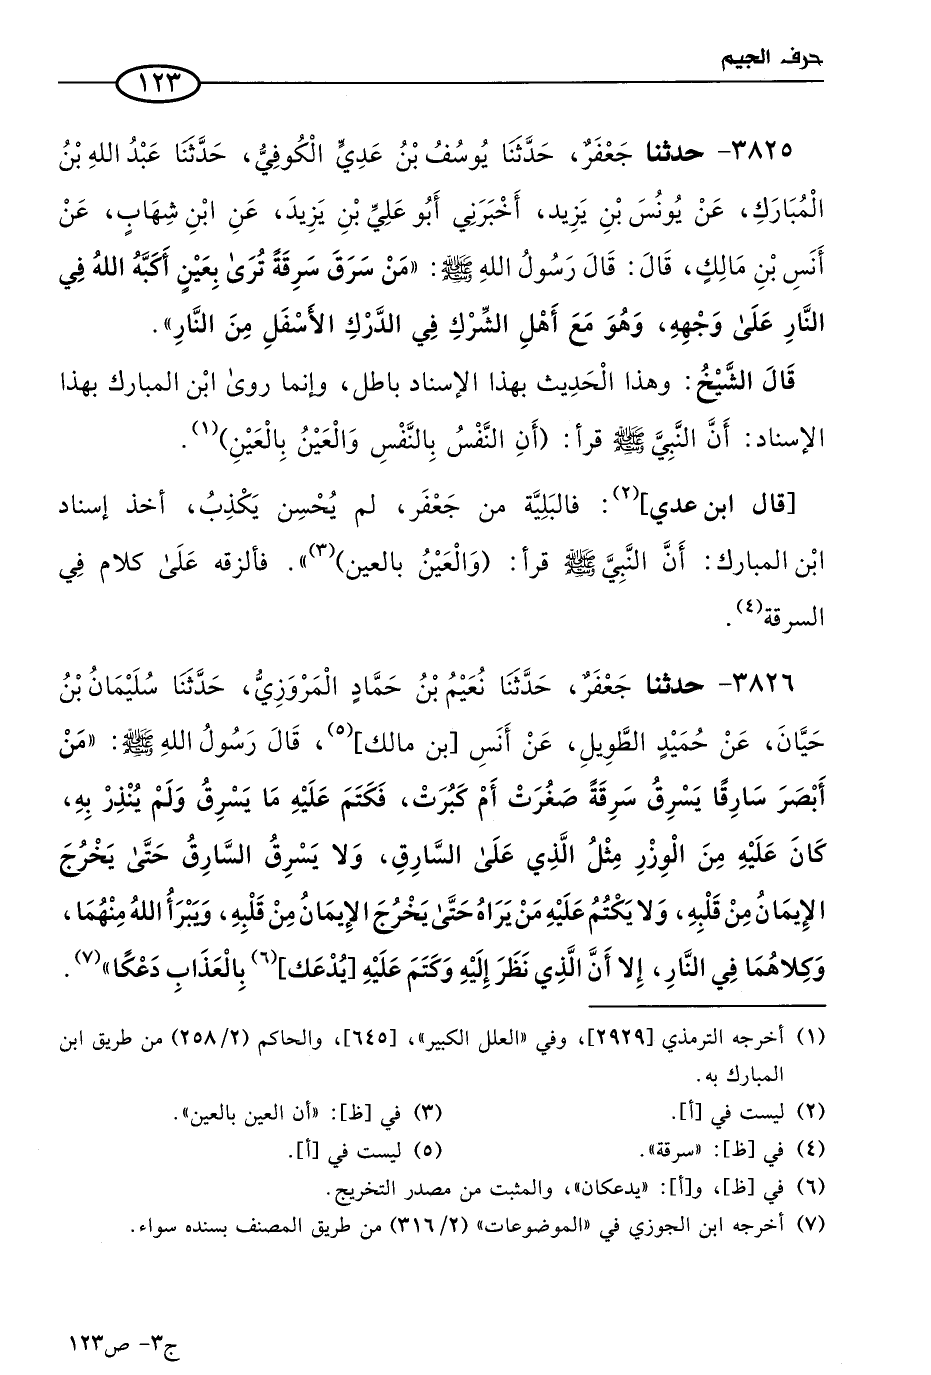 حرف الجيم
١٢٣
٣٨٢٥- حدثنا جَعْفَرٌ، حَدَّثَنَا يُوسُفُ بْنُ عَدِيٍّ الْكُوفِيُّ، حَدَّثَنَا عَبْدُ اللهِ بْنُ
الْمُبَارَكِ، عَنْ يُونُسَ بْنِ يَزِيد، أَخْبَرَنِي أَبُو عَلِيِّ بْنِ يَزِيدَ، عَنِ ابْنِ شِهَابٍ، عَنْ
أَنَسِ بْنِ مَالِكٍ، قَالَ: قَالَ رَسُولُ اللهِ ﷺ: «مَنْ سَرَقَ سَرِقَةً تُرَىٰ بِعَيْنٍ أَكَبَّهُ اللهُ فِي
النَّارِ عَلَىٰ وَجْهِهِ، وَهُوَ مَعَ أَهْلِ الشِّرْكِ فِي الدَّرْكِ الأَسْفَلِ مِنَ النَّارِ».
قَالَ الشَّيْخُ: وهذا الْحَدِيث بهذا الإسناد باطل، وإنما روىٰ ابْن المبارك بهذا
الإسناد: أَنَّ النَّبِيَّ ﷺ قرأ: (أَنِ النَّفْسُ بِالنَّفْسِ وَالْعَيْنُ بِالْعَيْنِ)(١).
[قال ابن عدي](٢): فالبَلِيَّة من جَعْفَر، لم يُحْسِن يَكْذِبُ، أخذ إسناد
ابْن المبارك: أَنَّ النَّبِيَّ ﷺ قرأ: (وَالْعَيْنُ بالعين)(٣)». فألزقه عَلَىٰ كلام فِي
السرقة(٤).
٣٨٢٦- حدثنا جَعْفَرٌ، حَدَّثَنَا نُعَيْمُ بْنُ حَمَّادٍ الْمَرْوَزِيُّ، حَدَّثَنَا سُلَيْمَانُ بْنُ
حَيَّانَ، عَنْ حُمَيْدٍ الطَّوِيلِ، عَنْ أَنَسِ [بن مالك](٥)، قَالَ رَسُولُ اللهِ ﷺ: «مَنْ
أَبْصَرَ سَارِقًا يَسْرِقُ سَرِقَةً صَغُرَتْ أَمْ كَبُرَتْ، فَكَتَمَ عَلَيْهِ مَا يَسْرِقُ وَلَمْ يُنْذِرْ بِهِ،
كَانَ عَلَيْهِ مِنَ الْوِزْرِ مِثْلُ الَّذِي عَلَىٰ السَّارِقِ، وَلا يَسْرِقُ السَّارِقُ حَتَّىٰ يَخْرُجَ
الإِيمَانُ مِنْ قَلْبِهِ، وَلا يَكْتُمُ عَلَيْهِ مَنْ يَرَاهُ حَتَّىٰ يَخْرُجَ الإِيمَانُ مِنْ قَلْبِهِ، وَيَبْرَأُ اللهُ مِنْهُمَا،
وَكِلاهُمَا فِي النَّارِ، إِلا أَنَّ الَّذِي نَظَرَ إِلَيْهِ وَكَتَمَ عَلَيْهِ [يُدْعَك](٦) بِالْعَذَابِ دَعْكًا»(٧).
(١) أخرجه الترمذي [٢٩٢٩]، وفي «العلل الكبير»، [٦٤٥]، والحاكم (٢/ ٢٥٨) من طريق ابن
المبارك به.
(٢) ليست في [أ]. (٣) في [ظ]: «أن العين بالعين».
(٤) في [ظ]: «سرقة». (٥) ليست في [أ].
(٦) في [ظ]، و[أ]: «يدعكان»، والمثبت من مصدر التخريج.
(٧) أخرجه ابن الجوزي في «الموضوعات» (٢/ ٣١٦) من طريق المصنف بسنده سواء.
ج٣- ص١٢٣